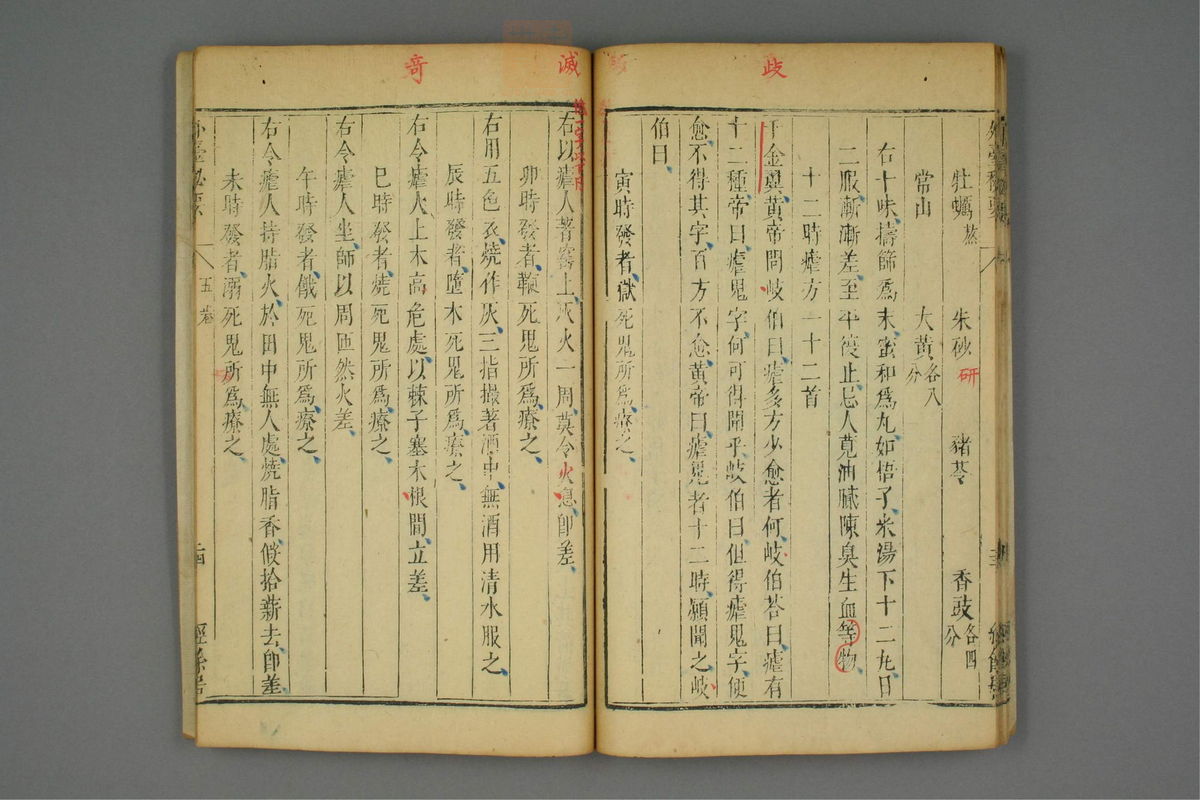 歧
牡蠣熬 朱砂研 豬苓 香豉各四分
常山 大黃各八分
右十味擣篩爲末蜜和爲丸如梧子米湯下十二丸日
二服漸漸差至平復止忌人莧油膩陳臭生血等物
十二時瘧方一十二首
千金翼黃帝問岐伯曰瘧多方少愈者何岐伯荅曰瘧有
十二種帝曰瘧鬼字何可得聞乎岐伯曰但得瘧鬼字便
愈不得其字百方不愈黃帝曰瘧鬼者十二時願聞之岐
伯曰
寅時發者獄死鬼所爲療之
滅
奇
右以瘧人著窰上灰火一周莫令火息卽差
卯時發者鞭死鬼所爲療之
右用五色衣燒作灰三指撮著酒中無酒用清水服之
辰時發者墮木死鬼所爲療之
右令瘧人上木高危處以棘子塞木根間立差
巳時發者燒死鬼所爲療之
右令瘧人坐師以周匝然火差
午時發者餓死鬼所爲療之
右令瘧人持腊火於田中無人處燒脂香假拾薪去卽差
未時發者溺死鬼所爲療之
外臺秘要 五卷